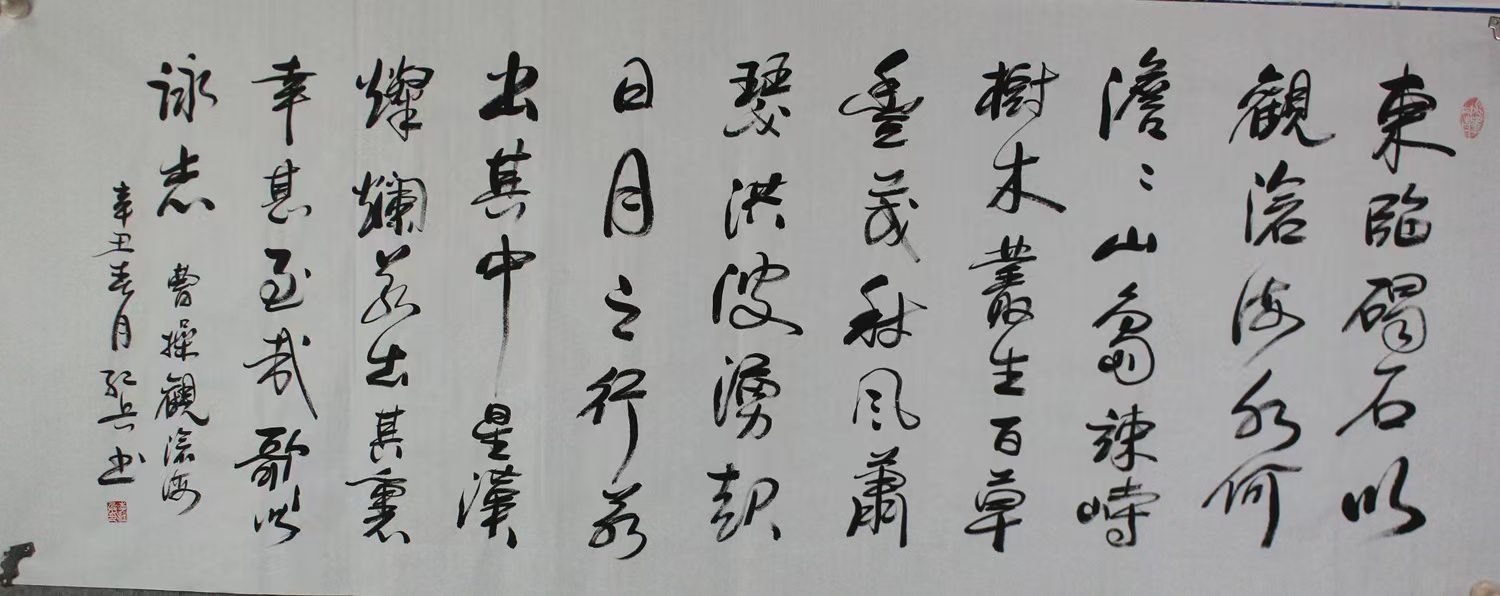 東臨碣石以
觀滄海水何
澹〻山島竦峙
樹木叢生百草
豐茂秋風蕭
瑟洪波湧起
日月之行若
出其中星漢
燦爛若出其裏
幸甚至哉歌以
詠志
曹操觀滄海
辛丑春月 兵书